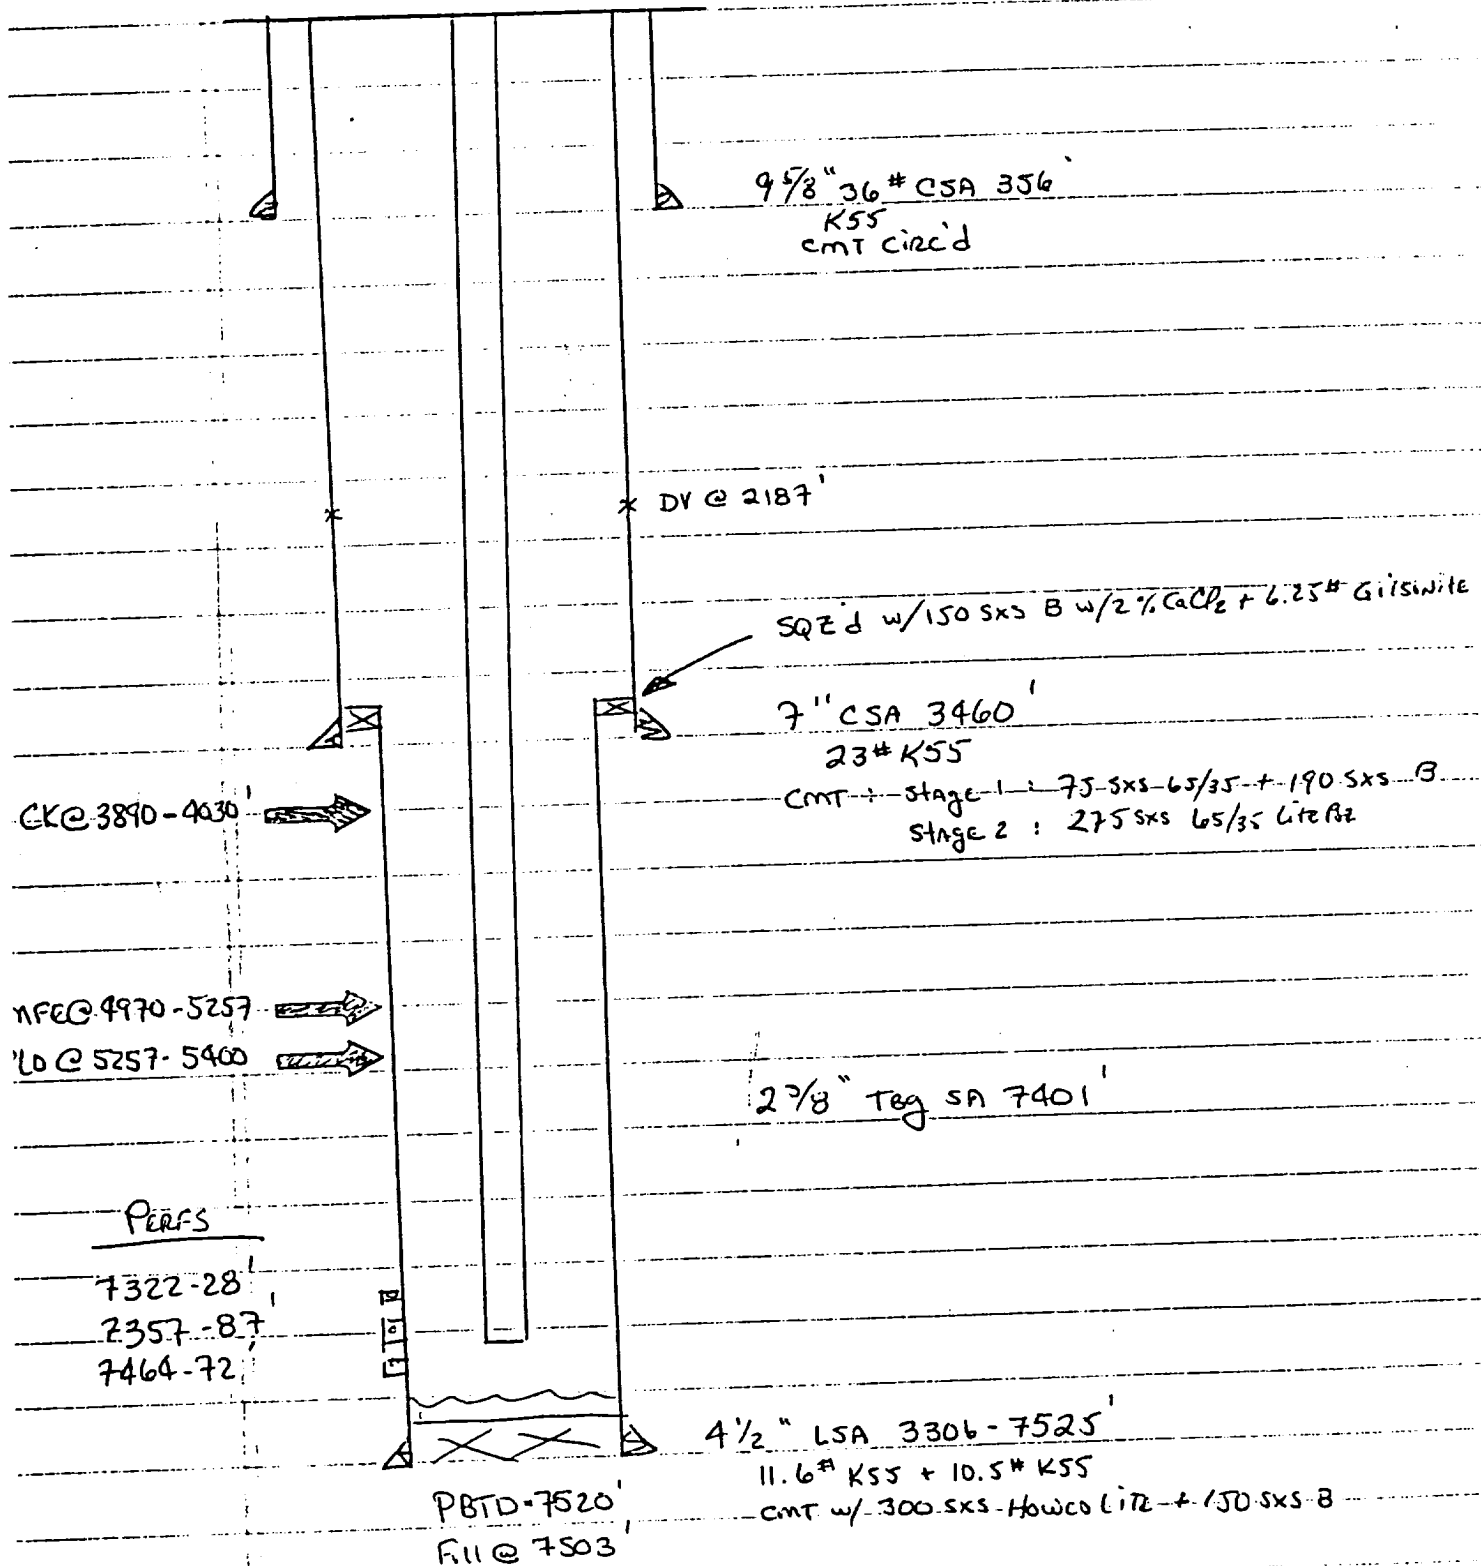 9 5/8" 36# CSA 356'
K55
CMT CIRC'd
DV @ 2187'
SQZ'd w/150 SXS B w/2% CaCl2 + 6.25# Gilsinite
7" CSA 3460'
23# K55
CMT : Stage 1 : 75 SXS 65/35 + 190 SXS B
Stage 2 : 275 SXS 65/35 Lite
CK@ 3890-4030'
MFE@ 4970-5257
LO @ 5257-5400
2 3/8" Tbg SA 7401'
PERFS
7322-28'
7357-87'
7464-72'
4 1/2" LSA 3306-7525'
11.6# K55 + 10.5# K55
CMT w/ 300 SXS Howco Lite + 150 SXS B
PBTD-7520'
Fill @ 7503'